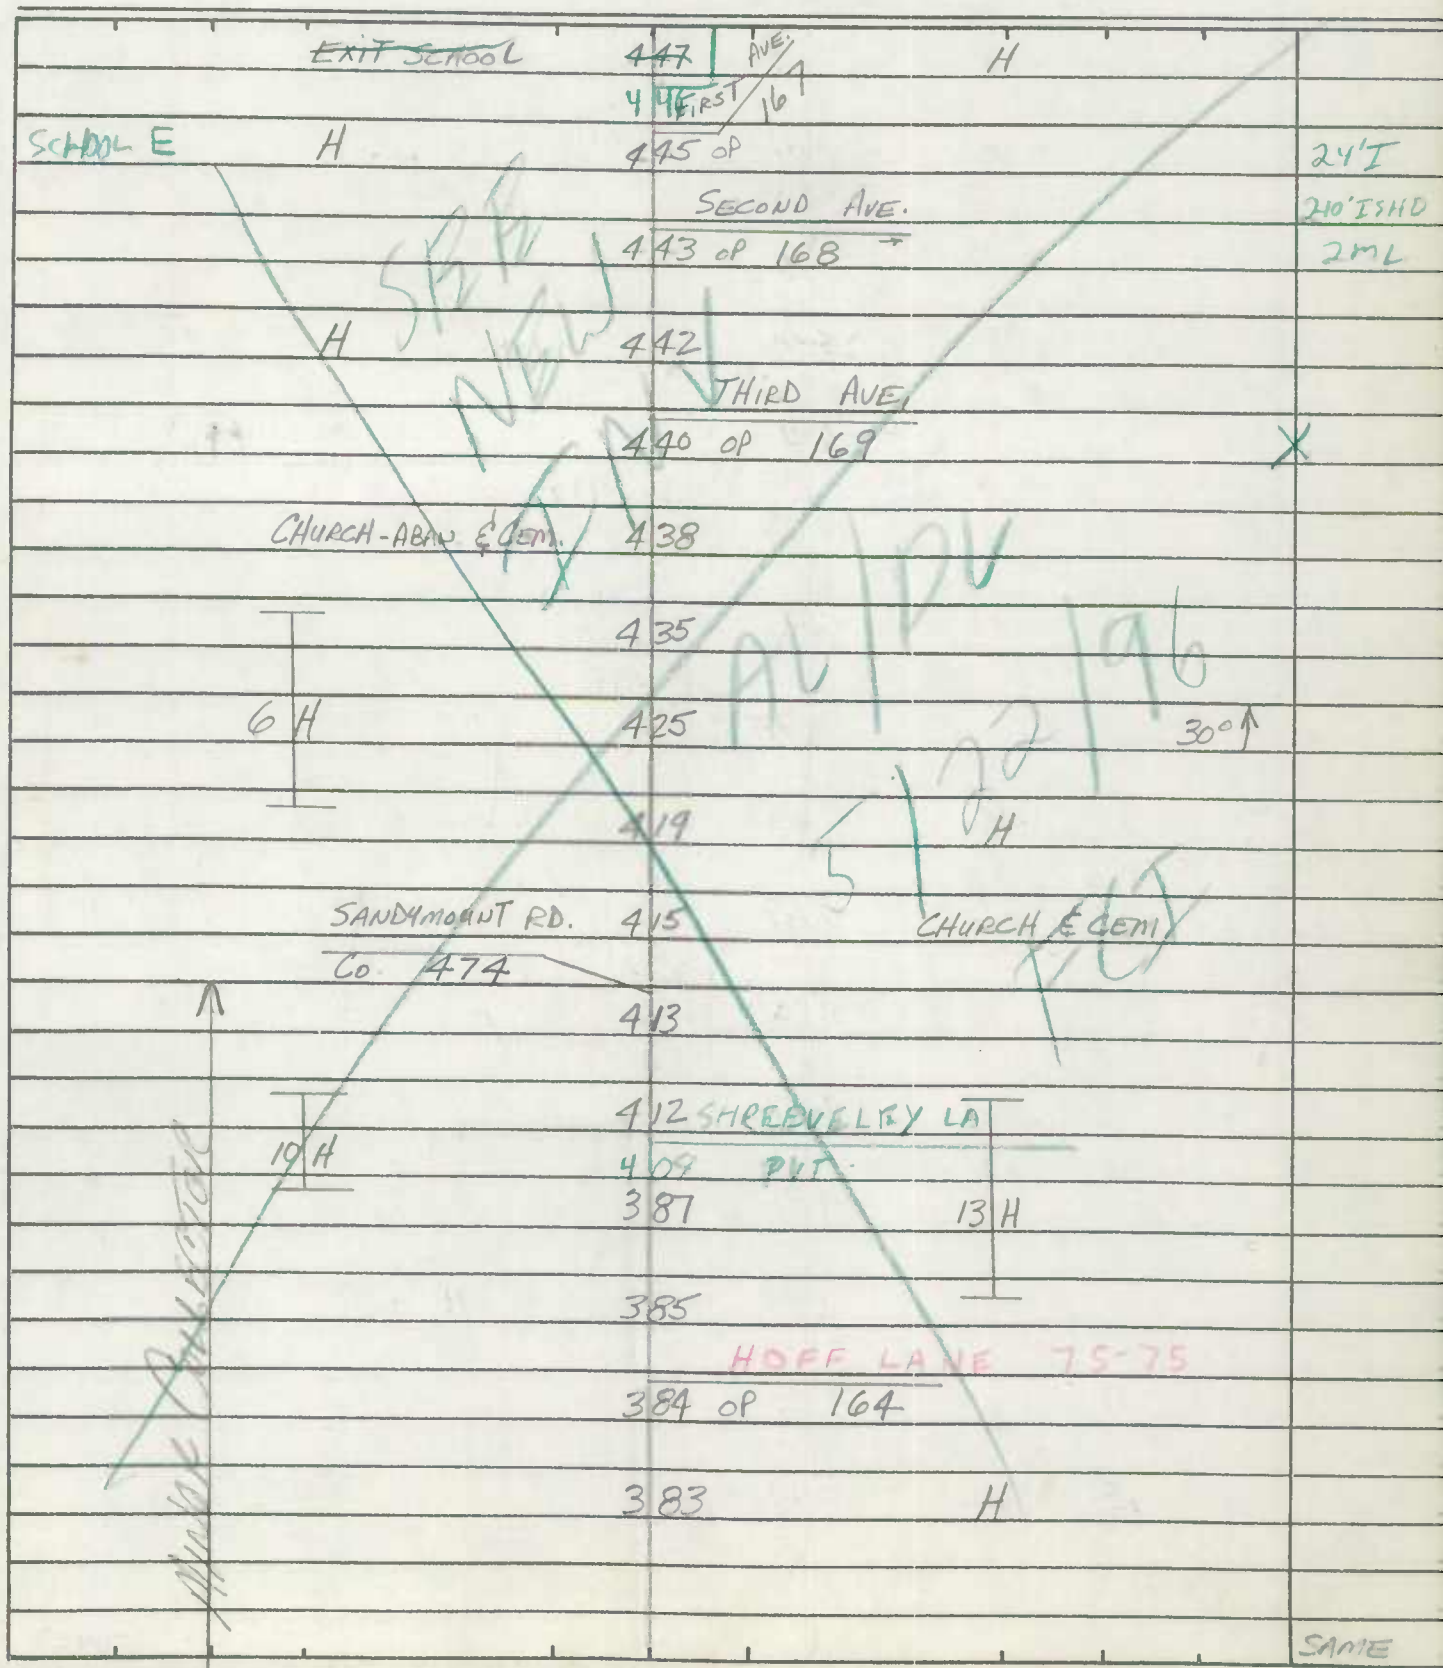 EXIT SCHOOL 4 47 AVE. H
4 46 FIRST 167
SCHOOL E H 4 45 OP 24'I
SECOND AVE. 210'ISHD
4 43 OP 168 → 2ML
SEE
NEW
H 4 42
THIRD AVE.
4 40 OP 169
CHURCH-ABAN & CEM. 4 38
4 35
AL/DV
6 H 4 25 30° ↑
5/22/96
4 19 H
SANDYMOUNT RD. 4 15 CHURCH & CEM.
Co. 474
4 13
4 12 SHREEVELEY LA
10 H 4 09 PVT.
3 87 13 H
3 85
HOFF LANE 75-75
3 84 OP 164
3 83 H
MINOR COLLECTOR
SAME